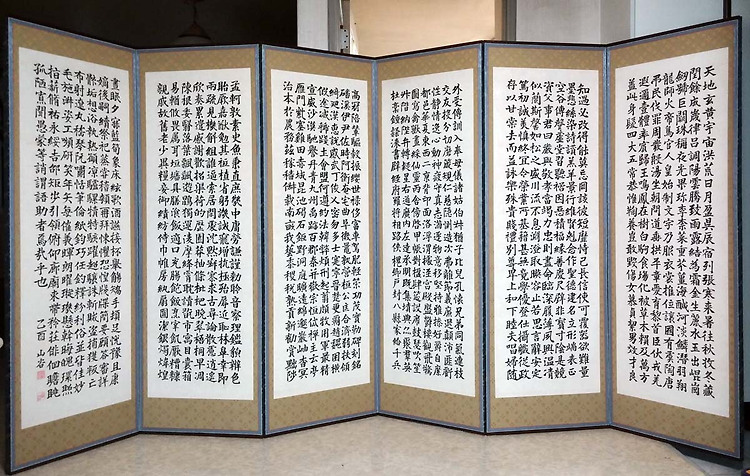 天地玄黃宇宙洪荒日月盈昃辰宿列張寒來暑往秋收冬藏
閏餘成歲律呂調陽雲騰致雨露結爲霜金生麗水玉出崑岡
劍號巨闕珠稱夜光果珍李柰菜重芥薑海鹹河淡鱗潛羽翔
龍師火帝鳥官人皇始制文字乃服衣裳推位讓國有虞陶唐
弔民伐罪周發殷湯坐朝問道垂拱平章愛育黎首臣伏戎羌
遐邇壹體率賓歸王鳴鳳在樹白駒食場化被草木賴及萬方
蓋此身髮四大五常恭惟鞠養豈敢毀傷女慕貞烈男效才良
知過必改得能莫忘罔談彼短靡恃己長信使可覆器欲難量
墨悲絲染詩讚羔羊景行維賢克念作聖德建名立形端表正
空谷傳聲虛堂習聽禍因惡積福緣善慶尺璧非寶寸陰是競
資父事君曰嚴與敬孝當竭力忠則盡命臨深履薄夙興溫凊
似蘭斯馨如松之盛川流不息淵澄取映容止若思言辭安定
篤初誠美愼終宜令榮業所基籍甚無竟學優登仕攝職從政
存以甘棠去而益詠樂殊貴賤禮別尊卑上和下睦夫唱婦隨
外受傅訓入奉母儀諸姑伯叔猶子比兒孔懷兄弟同氣連枝
交友投分切磨箴規仁慈隱惻造次弗離節義廉退顚沛匪虧
性靜情逸心動神疲守眞志滿逐物意移堅持雅操好爵自縻
都邑華夏東西二京背邙面洛浮渭據涇宮殿盤鬱樓觀飛驚
圖寫禽獸畵彩仙靈丙舍傍啓甲帳對楹肆筵設席鼓瑟吹笙
陞階納陛弁轉疑星右通廣內左達承明旣集墳典亦聚群英
杜稾鍾隷漆書壁經府羅將相路俠槐卿戶封八縣家給千兵
高冠陪輦驅轂振纓世祿侈富車駕肥輕策功茂實勒碑刻銘
磻溪伊尹佐時阿衡奄宅曲阜微旦孰營桓公匡合濟弱扶傾
綺迴漢惠說感武丁俊乂密勿多士寔寧晉楚更霸趙魏困橫
假途滅虢踐土會盟何遵約法韓弊煩刑起翦頗牧用軍最精
宣威沙漠馳譽丹靑九州禹跡百郡秦幷嶽宗恒岱禪主云亭
雁門紫塞鷄田赤城昆池碣石鉅野洞庭曠遠綿邈巖岫杳冥
治本於農務玆稼穡俶載南畝我藝黍稷稅熟貢新勸賞黜陟
孟軻敦素史魚秉直庶幾中庸勞謙謹勅聆音察理鑑貌辨色
貽厥嘉猷勉其祗植省躬譏誡寵增抗極殆辱近恥林皐幸卽
兩疏見機解組誰逼索居閑處沈默寂寥求古尋論散慮逍遙
欣奏累遣慼謝歡招渠荷的歷園莽抽條枇杷晩翠梧桐早凋
陳根委翳落葉飄颻遊鵾獨運凌摩絳霄耽讀翫市寓目囊箱
易輶攸畏屬耳垣牆具膳飡飯適口充腸飽飫烹宰飢厭糟糠
親戚故舊老少異糧妾御績紡侍巾帷房紈扇圓潔銀燭煒煌
晝眠夕寐藍筍象床絃歌酒讌接杯擧觴矯手頓足悅豫且康
嫡後嗣續祭祀蒸嘗稽顙再拜悚懼恐惶牋牒簡要顧答審詳
骸垢想浴執熱願凉驢騾犢特駭躍超驤誅斬賊盜捕獲叛亡
布射遼丸嵇琴阮嘯恬筆倫紙鈞巧任釣釋紛利俗竝皆佳妙
毛施淑姿工嚬姸笑年矢每催羲暉朗耀璇璣懸斡晦魄環照
指薪脩祜永綏吉邵矩步引領俯仰廊廟束帶矜莊徘徊瞻眺
孤陋寡聞愚蒙等誚謂語助者焉哉乎也 己酉 山